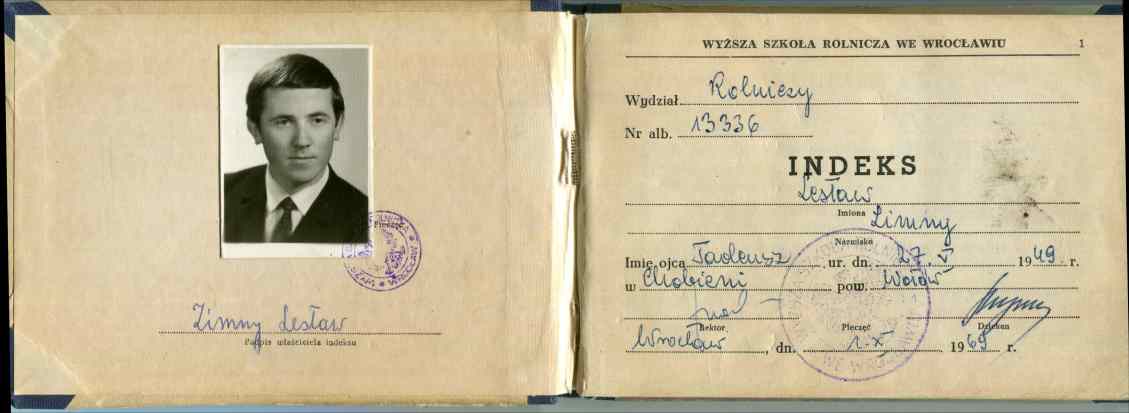 Pieczęć
WROCŁAW
Zimny Lesław
Podpis właściciela indeksu
WYŻSZA SZKOŁA ROLNICZA WE WROCŁAWIU 1
Wydział Rolniczy
Nr alb. 13336
INDEKS
Lesław
Imiona
Zimny
Nazwisko
Imię ojca Tadeusz ur. dn. 27.VI 1949 r.
w Chobieni pow. Wołów
Rektor Pieczęć Dziekan
Wrocław, dn. 1.X 1969 r.